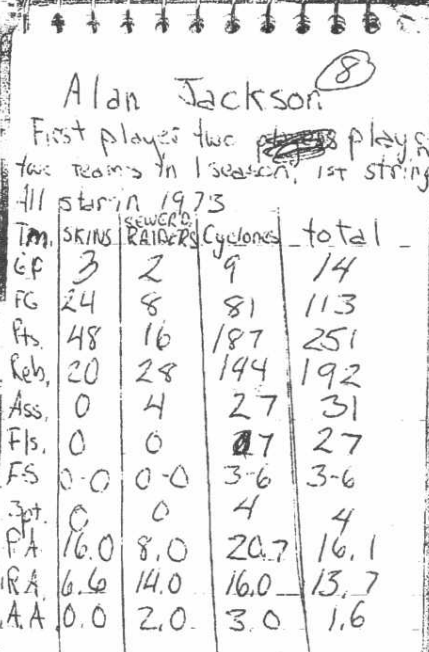 8
Alan Jackson
First player two plays
two teams in 1 season, 1st string
All star in 1973
Tm. SKINS SEWER D. RAIDERS Cyclones total
GP 3 2 9 14
FG 24 8 81 113
Pts. 48 16 187 251
Reb. 20 28 144 192
Ass. 0 4 27 31
Fls. 0 0 7 27
FS 0-0 0-0 3-6 3-6
3pt. 0 0 4 4
PA 16.0 8.0 20.7 16.1
RA. 6.6 14.0 16.0 13.7
A.A 0.0 2.0 3.0 1.6